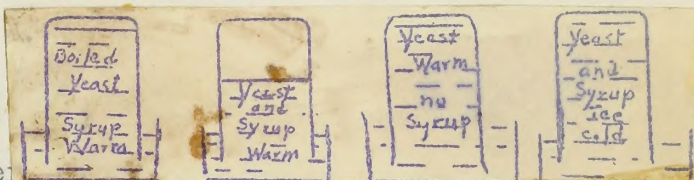 Boiled
Yeast
Syrup
Warm
Yeast
and
Syrup
Warm
Yeast
Warm
no
Syrup
Yeast
and
Syrup
ice
cold